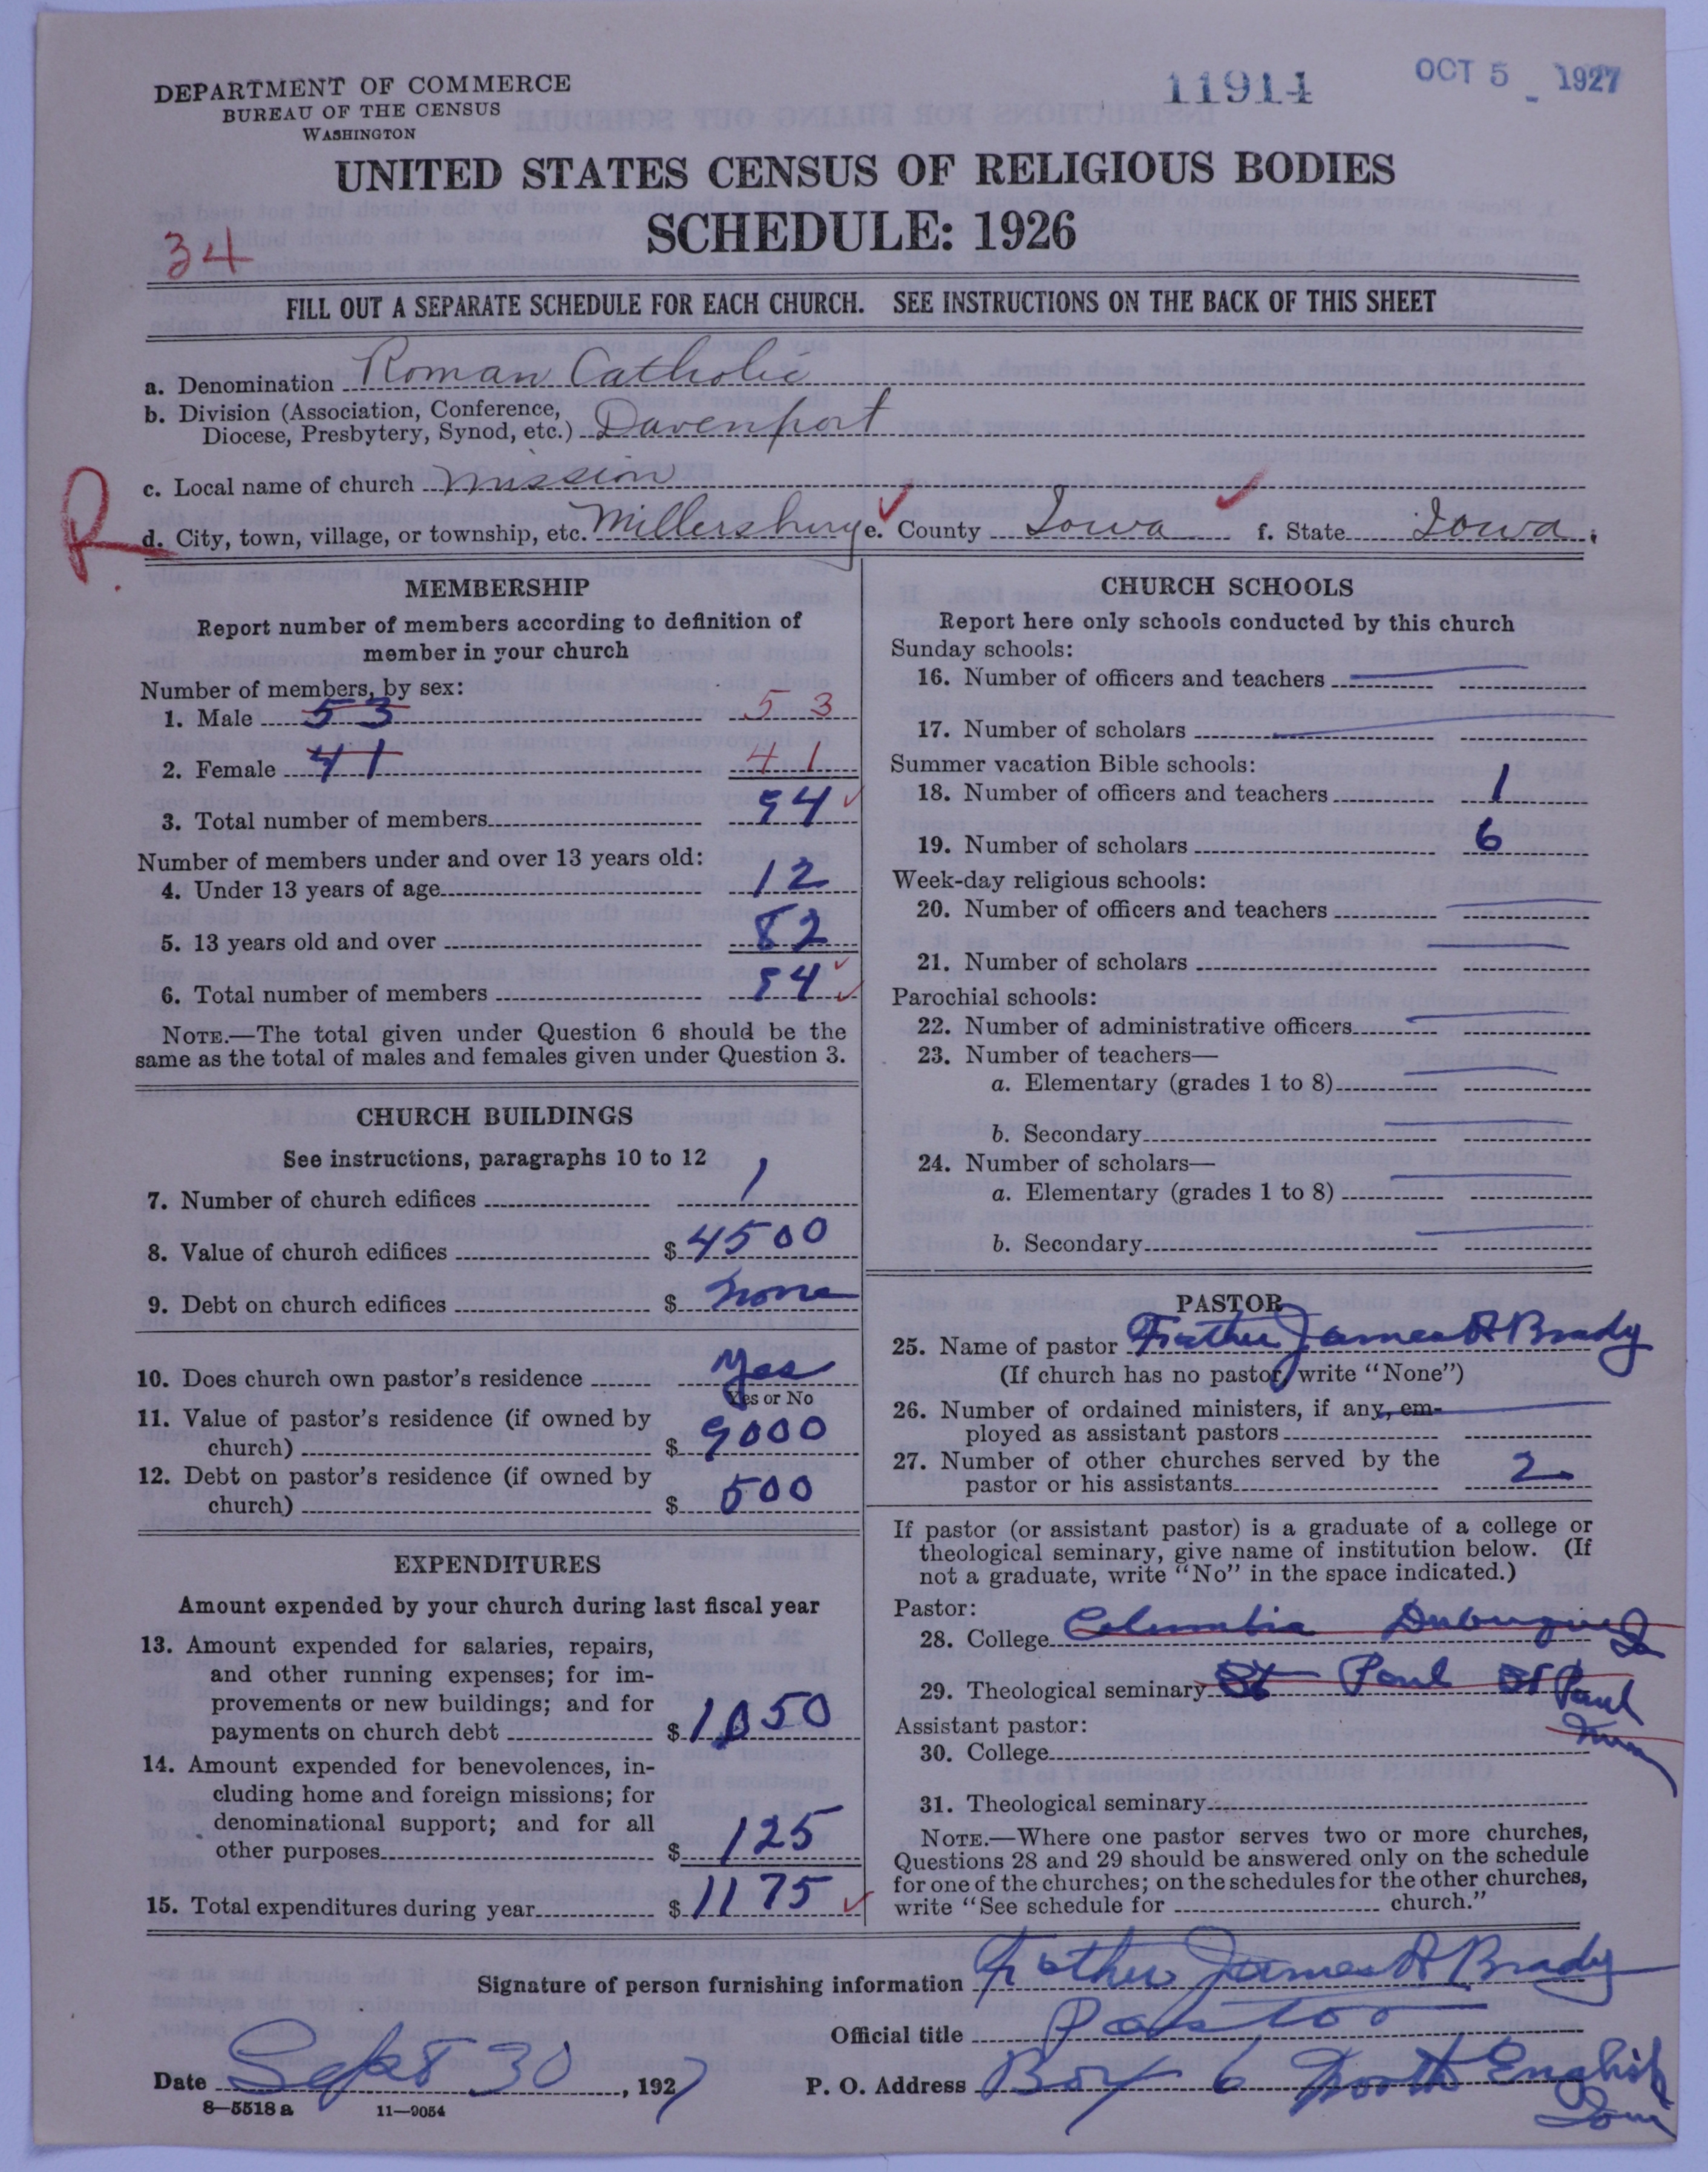 DEPARTMENT OF COMMERCE
BUREAU OF THE CENSUS
WASHINGTON
11914
OCT 5 1927
UNITED STATES CENSUS OF RELIGIOUS BODIES
SCHEDULE: 1926
34
FILL OUT A SEPARATE SCHEDULE FOR EACH CHURCH. SEE INSTRUCTIONS ON THE BACK OF THIS SHEET
a. Denomination Roman Catholic
b. Division (Association, Conference,
Diocese, Presbytery, Synod, etc.) Davenport
c. Local name of church Mission
R.
d. City, town, village, or township, etc. Millersburg e. County Iowa f. State Iowa.
MEMBERSHIP
Report number of members according to definition of
member in your church
Number of members, by sex:
1. Male 53 53
2. Female 41 41
3. Total number of members 94
Number of members under and over 13 years old:
4. Under 13 years of age 12
5. 13 years old and over 82
6. Total number of members 94
NOTE.—The total given under Question 6 should be the
same as the total of males and females given under Question 3.
CHURCH BUILDINGS
See instructions, paragraphs 10 to 12
7. Number of church edifices 1
8. Value of church edifices $ 4500
9. Debt on church edifices $ none
10. Does church own pastor's residence Yes
Yes or No
11. Value of pastor's residence (if owned by
church) $ 9000
12. Debt on pastor's residence (if owned by
church) $ 500
EXPENDITURES
Amount expended by your church during last fiscal year
13. Amount expended for salaries, repairs,
and other running expenses; for im-
provements or new buildings; and for
payments on church debt $ 1050
14. Amount expended for benevolences, in-
cluding home and foreign missions; for
denominational support; and for all
other purposes $ 125
15. Total expenditures during year $ 1175
CHURCH SCHOOLS
Report here only schools conducted by this church
Sunday schools:
16. Number of officers and teachers
17. Number of scholars
Summer vacation Bible schools:
18. Number of officers and teachers 1
19. Number of scholars 6
Week-day religious schools:
20. Number of officers and teachers
21. Number of scholars
Parochial schools:
22. Number of administrative officers
23. Number of teachers—
a. Elementary (grades 1 to 8)
b. Secondary
24. Number of scholars—
a. Elementary (grades 1 to 8)
b. Secondary
PASTOR
25. Name of pastor Father James A Brady
(If church has no pastor, write "None")
26. Number of ordained ministers, if any, em-
ployed as assistant pastors
27. Number of other churches served by the
pastor or his assistants 2
If pastor (or assistant pastor) is a graduate of a college or
theological seminary, give name of institution below. (If
not a graduate, write "No" in the space indicated.)
Pastor:
28. College Columbia Dubuque Ia
29. Theological seminary St Paul St Paul
Minn
Assistant pastor:
30. College
31. Theological seminary
NOTE.—Where one pastor serves two or more churches,
Questions 28 and 29 should be answered only on the schedule
for one of the churches; on the schedules for the other churches,
write "See schedule for church."
Signature of person furnishing information Father James A Brady
Official title Pastor
Date Sept 30, 1927 P. O. Address Box 6 North English
Iowa
8—5518 a 11—9054